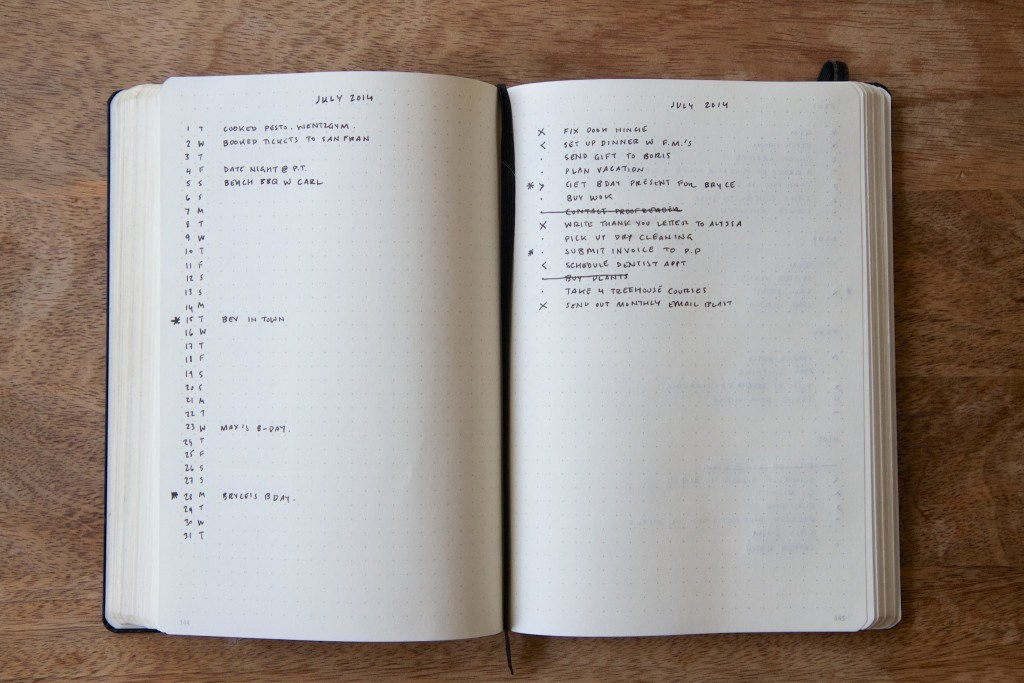 JULY 2014
1 T COOKED PESTO. WENT 2 GYM.
2 W BOOKED TICKETS TO SAN FRAN
3 T
4 F DATE NIGHT @ P.T.
5 S BEACH BBQ W CARL
6 S
7 M
8 T
9 W
10 T
11 F
12 S
13 S
14 M
* 15 T BEV IN TOWN
16 W
17 T
18 F
19 S
20 S
21 M
22 T
23 W MAX'S B-DAY.
24 T
25 F
26 S
27 S
* 28 M BRYCE'S BDAY.
29 T
30 W
31 T
244
JULY 2014
X FIX DOOR HINGE
< SET UP DINNER W F.M.'S
· SEND GIFT TO BORIS
· PLAN VACATION
* > GET BDAY PRESENT FOR BRYCE
· BUY WOK
· CONTACT PROOFREADER
X WRITE THANK YOU LETTER TO ALYSSA
· PICK UP DRY CLEANING
* · SUBMIT INVOICE TO P.P
< SCHEDULE DENTIST APPT
· BUY PLANTS
· TAKE 4 TREEHOUSE COURSES
X SEND OUT MONTHLY EMAIL BLAST
245